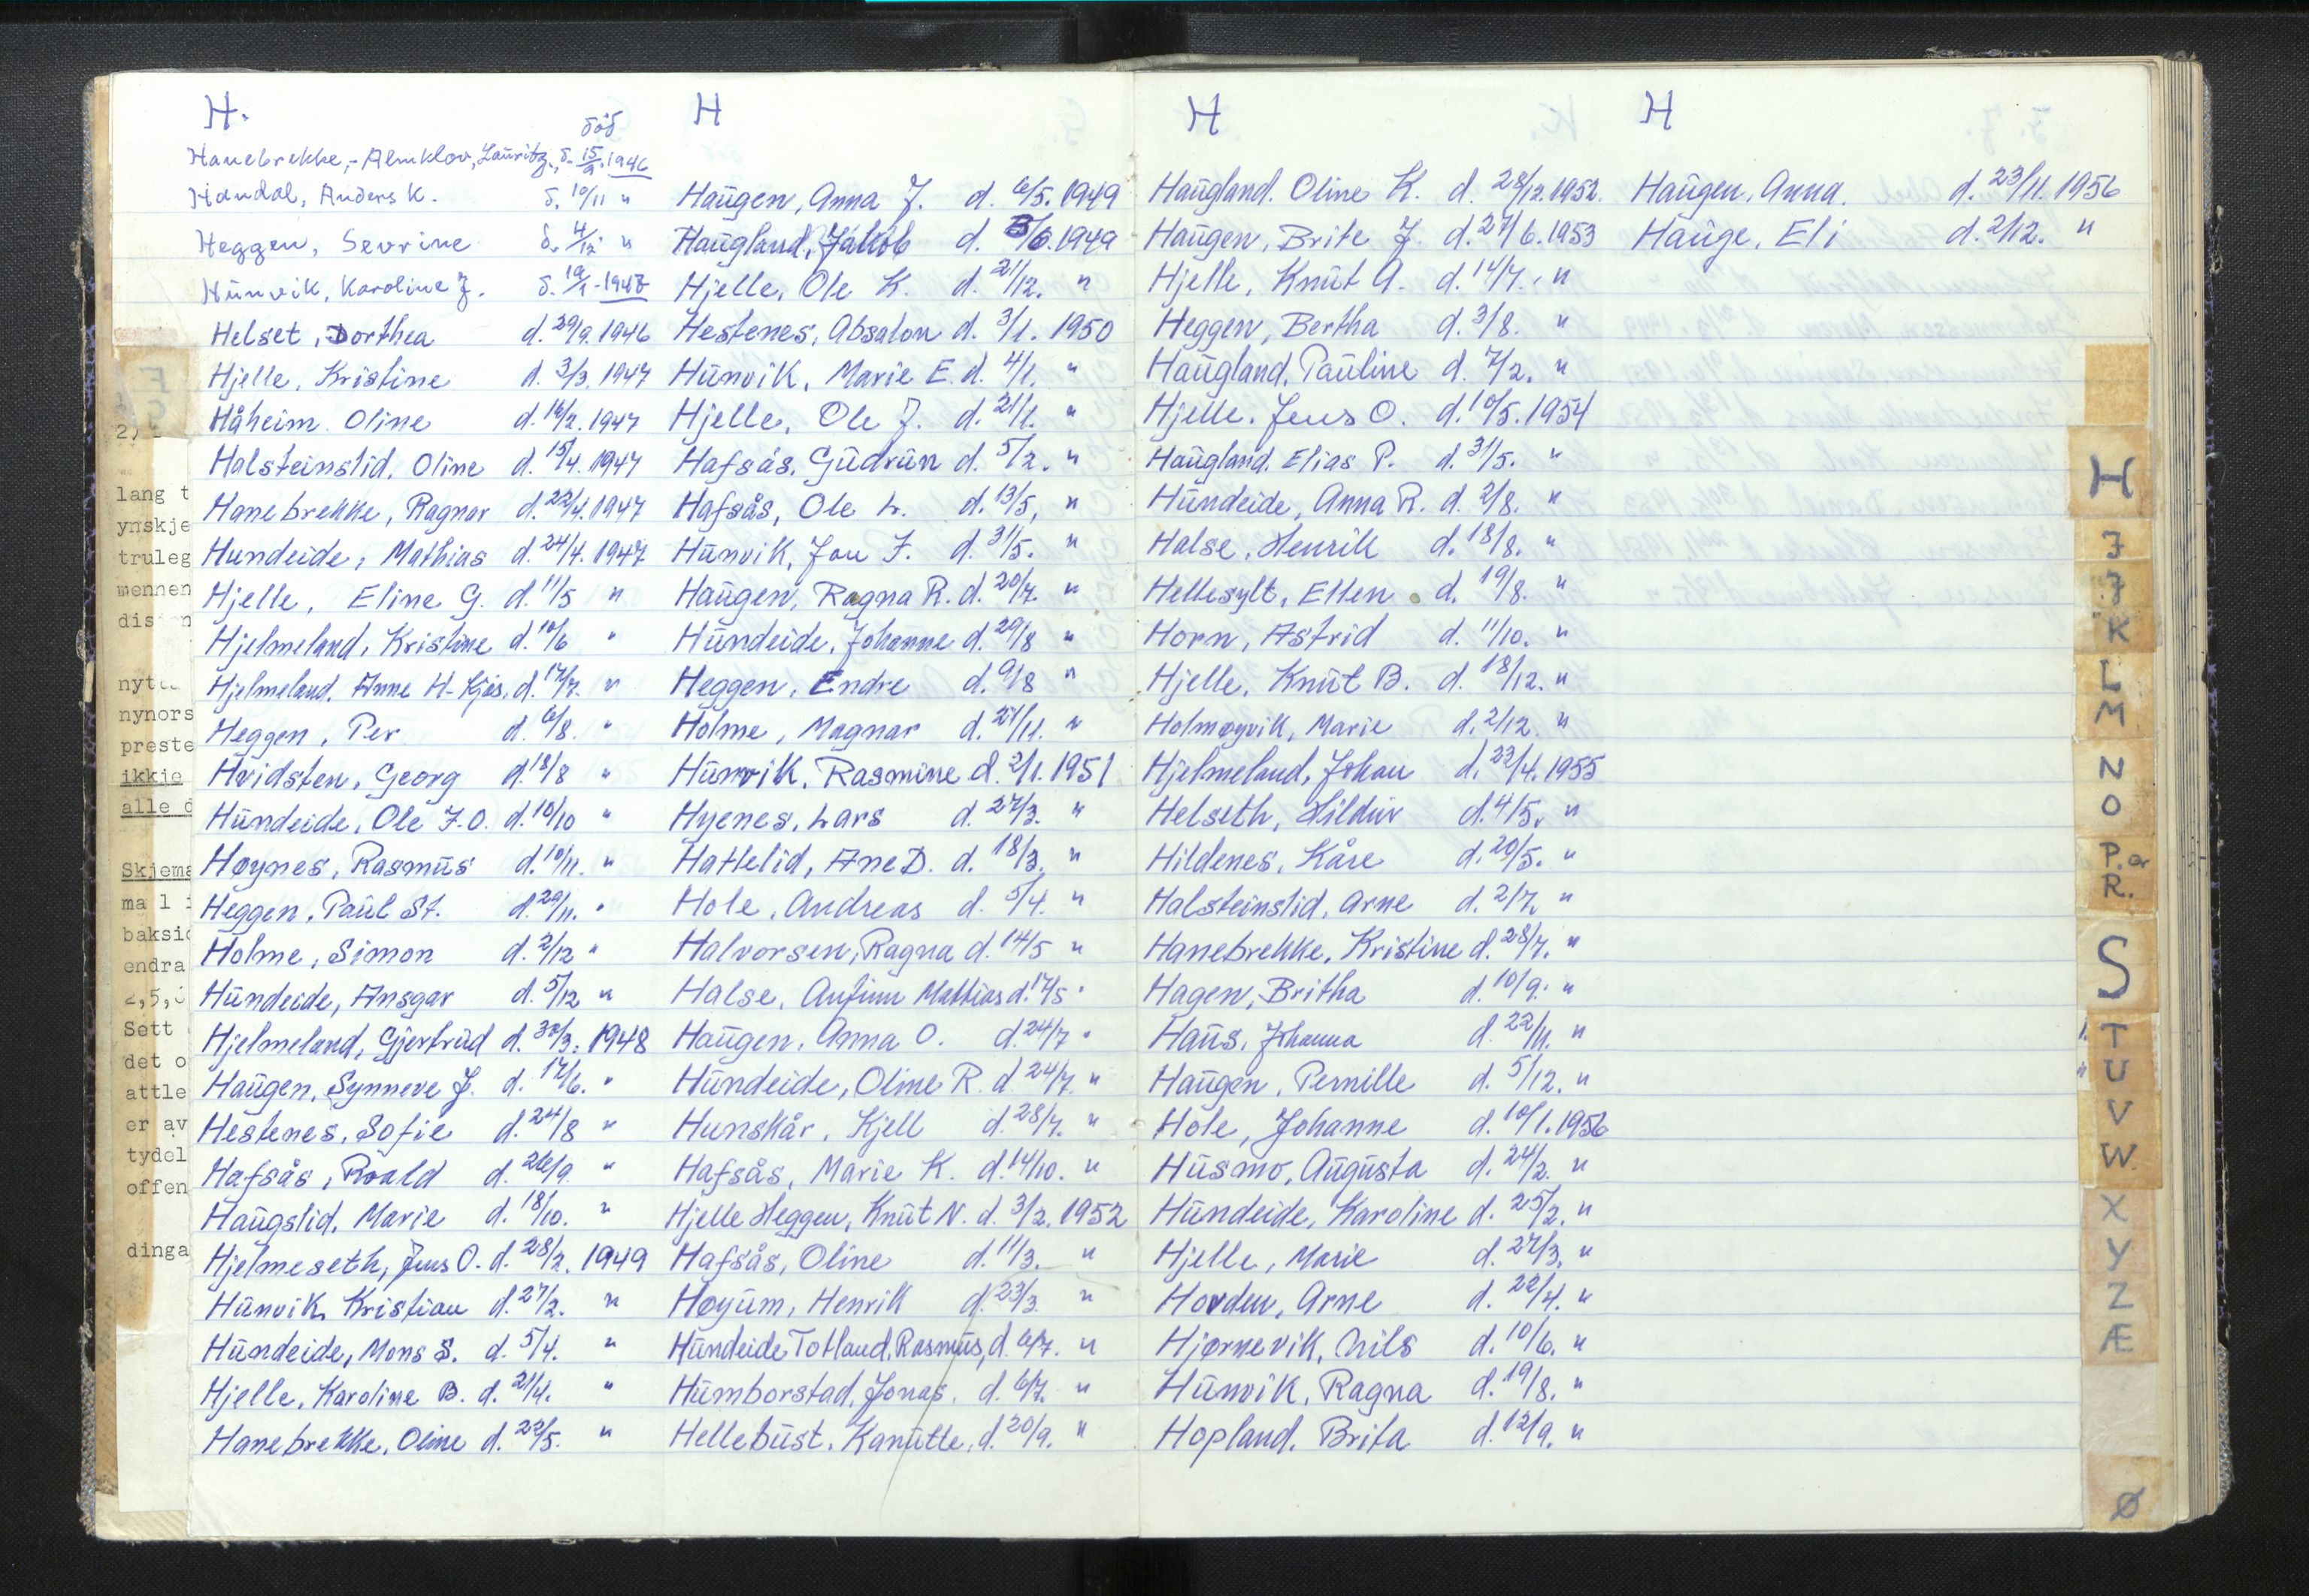 H.
død
Hanebrekke,-Almklov, Lauritz, d. 15/9. 1946
Handal, Anders K. d. 10/11 "
Heggen, Sevrine d. 4/12 "
Hunvik, Karoline J.
Helset, Dorthea d. 29/9. 1946
Hjelle, Kristine d. 3/3. 1947
Håheim. Oline d. 16/2. 1947
Halsteinslid, Oline d. 15/4. 1947
Hanebrekke, Ragnar d. 22/4. 1947
Hundeide, Mathias d. 24/4. 1947
Hjelle, Eline G. d. 11/5 "
Hjelmeland, Kristine d. 10/6 "
Hjelmeland, Anne H-Kjøs, d. 17/7. "
Heggen, Per d. 6/8. "
Hvidsten, Georg d. 18/8 "
Hundeide, Ole J.O. d. 10/10 "
Høynes, Rasmus d. 10/11. "
Heggen, Paul St. d. 29/11. "
Holme, Simon d. 2/12 "
Hundeide, Ansgar d. 5/12 "
Hjelmeland, Gjertrud d. 30/3. 1948
Haugen, Synneve J. d. 17/6. "
Hestenes, Sofie d. 24/8 "
Hafsås, Roald d. 26/9. "
Haugslid, Marie d. 18/10. "
Hjelmeseth, Jens O. d. 28/2. 1949
Hunvik, Kristian d. 27/2. "
Hundeide, Mons S. d. 5/4. "
Hjelle, Karoline B. d. 21/4. "
Hanebrekke, Oline d. 22/5. "
H
Haugen, Anna J. d. 6/5. 1949
Haugland, Jakob d. 3/6. 1949
Hjelle, Ole K. d. 21/12. "
Hestenes, Absalon d. 3/1. 1950
Hunvik, Marie E. d. 4/1. "
Hjelle, Ole J. d. 21/1. "
Hafsås, Gudrun d. 5/2. "
Hafsås, Ole L. d. 13/5, "
Hunvik, Jon J. d. 31/5. "
Haugen, Ragna R. d. 20/7. "
Hundeide, Johanne d. 29/8 "
Heggen, Endre d. 9/8 "
Holme, Magnar d. 21/11. "
Hunvik, Rasmine d. 2/1. 1951
Hyenes, Lars d. 27/3. "
Hattelid, Ane D. d. 18/3. "
Hole, Andreas d. 5/4. "
Halvorsen, Ragna d. 14/5 "
Halse, Anfinn Mathias d. 17/5 "
Haugen, Anna O. d. 24/7 "
Hundeide, Oline R. d. 24/7. "
Hunskår, Kjell d. 28/7. "
Hafsås, Marie K. d. 14/10. "
Hjelle Heggen, Knut N. d. 3/2. 1952
Hafsås, Oline d. 11/3. "
Høyum, Henrik d. 23/3. "
Hundeide Totland, Rasmus, d. 6/7. "
Humborstad, Jonas, d. 6/7. "
Hellebust, Kanutte, d. 20/9. "
H
Haugland. Oline K. d. 28/12. 1952.
Haugen, Brite J. d. 27/6. 1953
Hjelle, Knut A. d. 14/7. "
Heggen, Bertha d. 3/8. "
Haugland, Pauline d. 7/2. "
Hjelle, Jens O. d. 10/5. 1954
Haugland, Elias P. d. 31/5. "
Hundeide, Anna R. d. 2/8. "
Halse, Henrik d. 18/8. "
Hellesylt, Ellen d. 19/8. "
Horn, Astrid d. 11/10. "
Hjelle, Knut B. d. 18/12. "
Holmøyvik, Marie d. 2/12. "
Hjelmeland, Johan d. 22/4. 1955
Helseth, Hildur d. 4/5. "
Hildenes, Kåre d. 20/5. "
Halsteinslid, Arne d. 2/7. "
Hanebrekke, Kristine d. 28/7. "
Hagen, Britha d. 10/9. "
Haus, Johanna d. 22/11. "
Haugen, Pernille d. 5/12. "
Hole, Johanne d. 10/1. 1956
Husmo, Augusta d. 24/2. "
Hundeide, Karoline d. 25/2. "
Hjelle, Marie d. 27/3. "
Hovden, Arne d. 22/4. "
Hjørnevik, Nils d. 10/6. "
Hunvik, Ragna d. 19/8. "
Hopland, Brita d. 12/9. "
H
Haugen, Anna. d. 23/11. 1956
Hauge, Eli d. 2/12. "
2)
lang t
ynskje
truleg
mennen
nynors
preste
ikkje
alle d
Skjema
baksid
endra
2,5,
Sett
det o
attle
er av
tydel
offen
dinga
H
I
J
K
L
M
N
O
P. Q
R.
S
T
U
V
W.
X
Y
Z
Æ
Ø